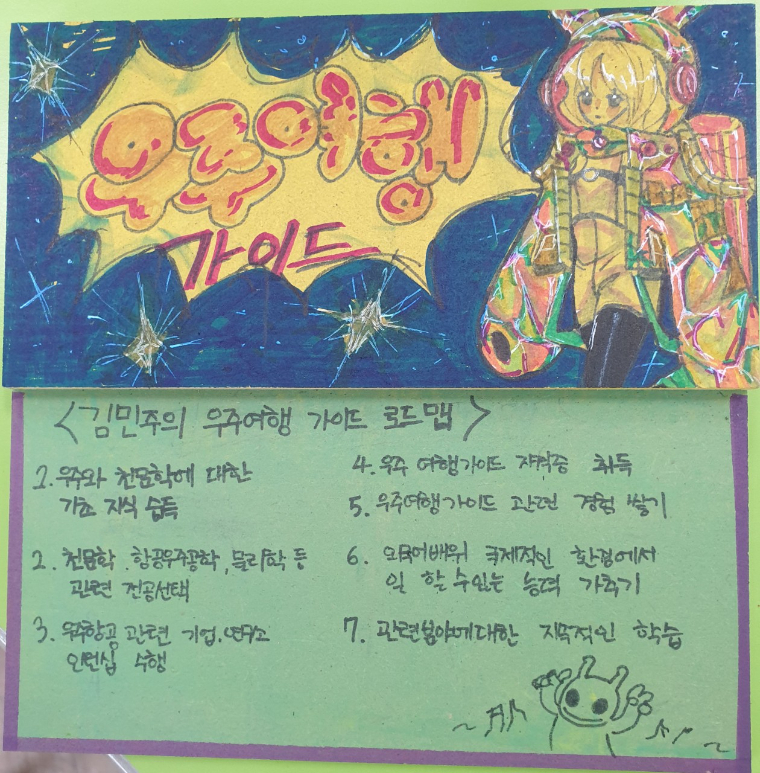 우주여행
가이드
<김민주의 우주여행 가이드 로드맵>
1. 우주와 천문학에 대한
기초 지식 습득
2. 천문학, 항공우주공학, 물리학 등
관련 전공선택
3. 우주항공 관련 기업.연구소
인턴십 수행
4. 우주 여행가이드 자격증 취득
5. 우주여행가이드 관련 경험 쌓기
6. 외국어배워 국제적인 환경에서
일 할 수 있는 능력 갖추기
7. 관련분야에대한 지속적인 학습